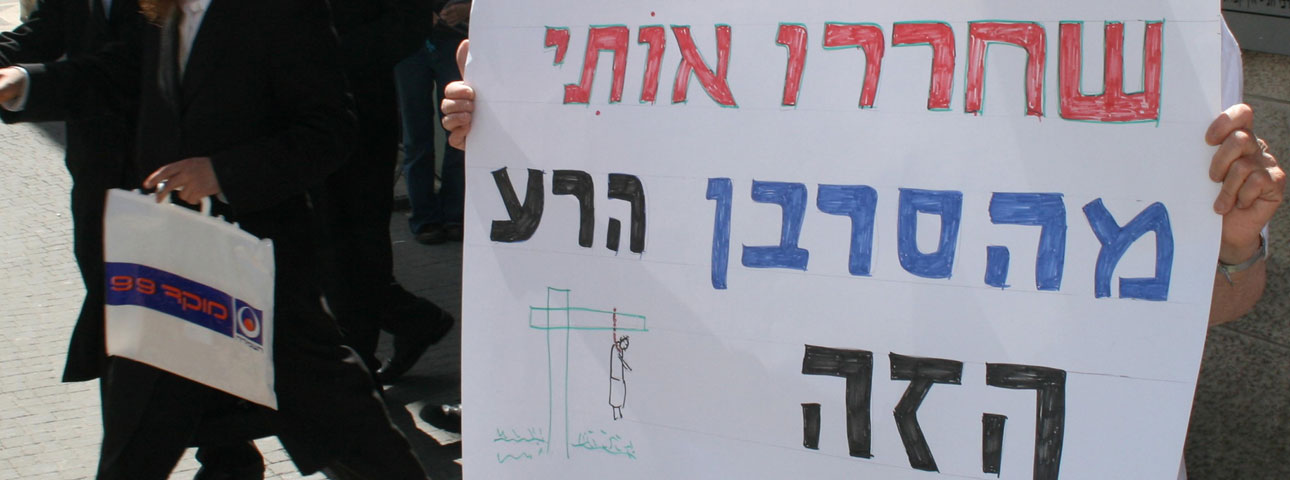 שחררו אותי
מהסרבן הרע
הזה
מוקד 99